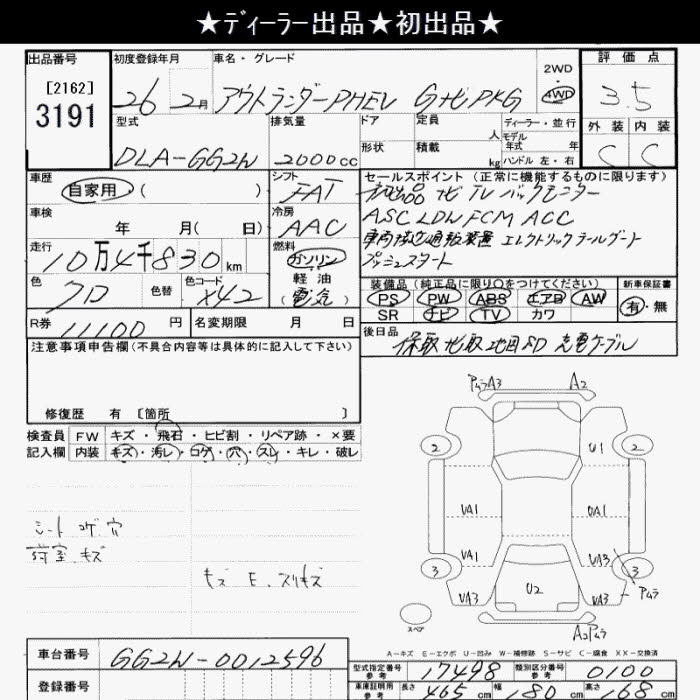 ★ディーラー出品★初出品★
出品番号
[2162]
3191
初度登録年月
26 2月
車名・グレード
アウトランダーPHEV GナビPKG
2WD
4WD
評価点
3.5
外装 内装
C C
型式
DLA-GG2W
排気量
2000cc
ドア
形状
定員
人
積載
kg
ディーラー・並行
モデル年式 年
ハンドル 左・右
車歴
自家用 ( )
シフト
FAT
車検
年 月( 日)
冷房
AAC
走行
10万4千830km
燃料
ガソリン
軽油
(電気)
色
クロ
色替
色コード
X42
R券
11100円
名変期限 月 日
セールスポイント (正常に機能するものに限ります)
初出品 ナビ TV バックモニター
ASC LDW FCM ACC
車両接近通報装置 エレクトリックテールゲート
プッシュスタート
装備品 (純正品に限り○をつけてください)
PS PW ABS エアB AW
SR ナビ TV カワ
新車保証書
有・無
後日品
保取 ナビ取 地図SD 充電ケーブル
注意事項申告欄 (不具合内容等は具体的に記入して下さい)
修復歴 有 〔箇所 〕
検査員
記入欄
FW キズ・飛石・ヒビ割・リペア跡・×要
内装 キズ・汚レ・コゲ・穴・スレ・キレ・破レ
シート コゲ 穴
荷室 キズ
キズ E. スリキズ
PムラA3 A2
2 U1 2
UA1 UA1
UA1 UA3
3 3
UA3 U2 UA3 Pムラ
スペア
A2Pムラ
A-キズ E-エクボ U-凹み W-補修跡 S-サビ C-腐食 XX-交換済
車台番号
GG2W-0012596
登録番号
型式指定番号
参考
17498
類別区分番号
参考
0100
車庫証明用
参考
長さ 465cm 幅 180cm 高さ 168cm